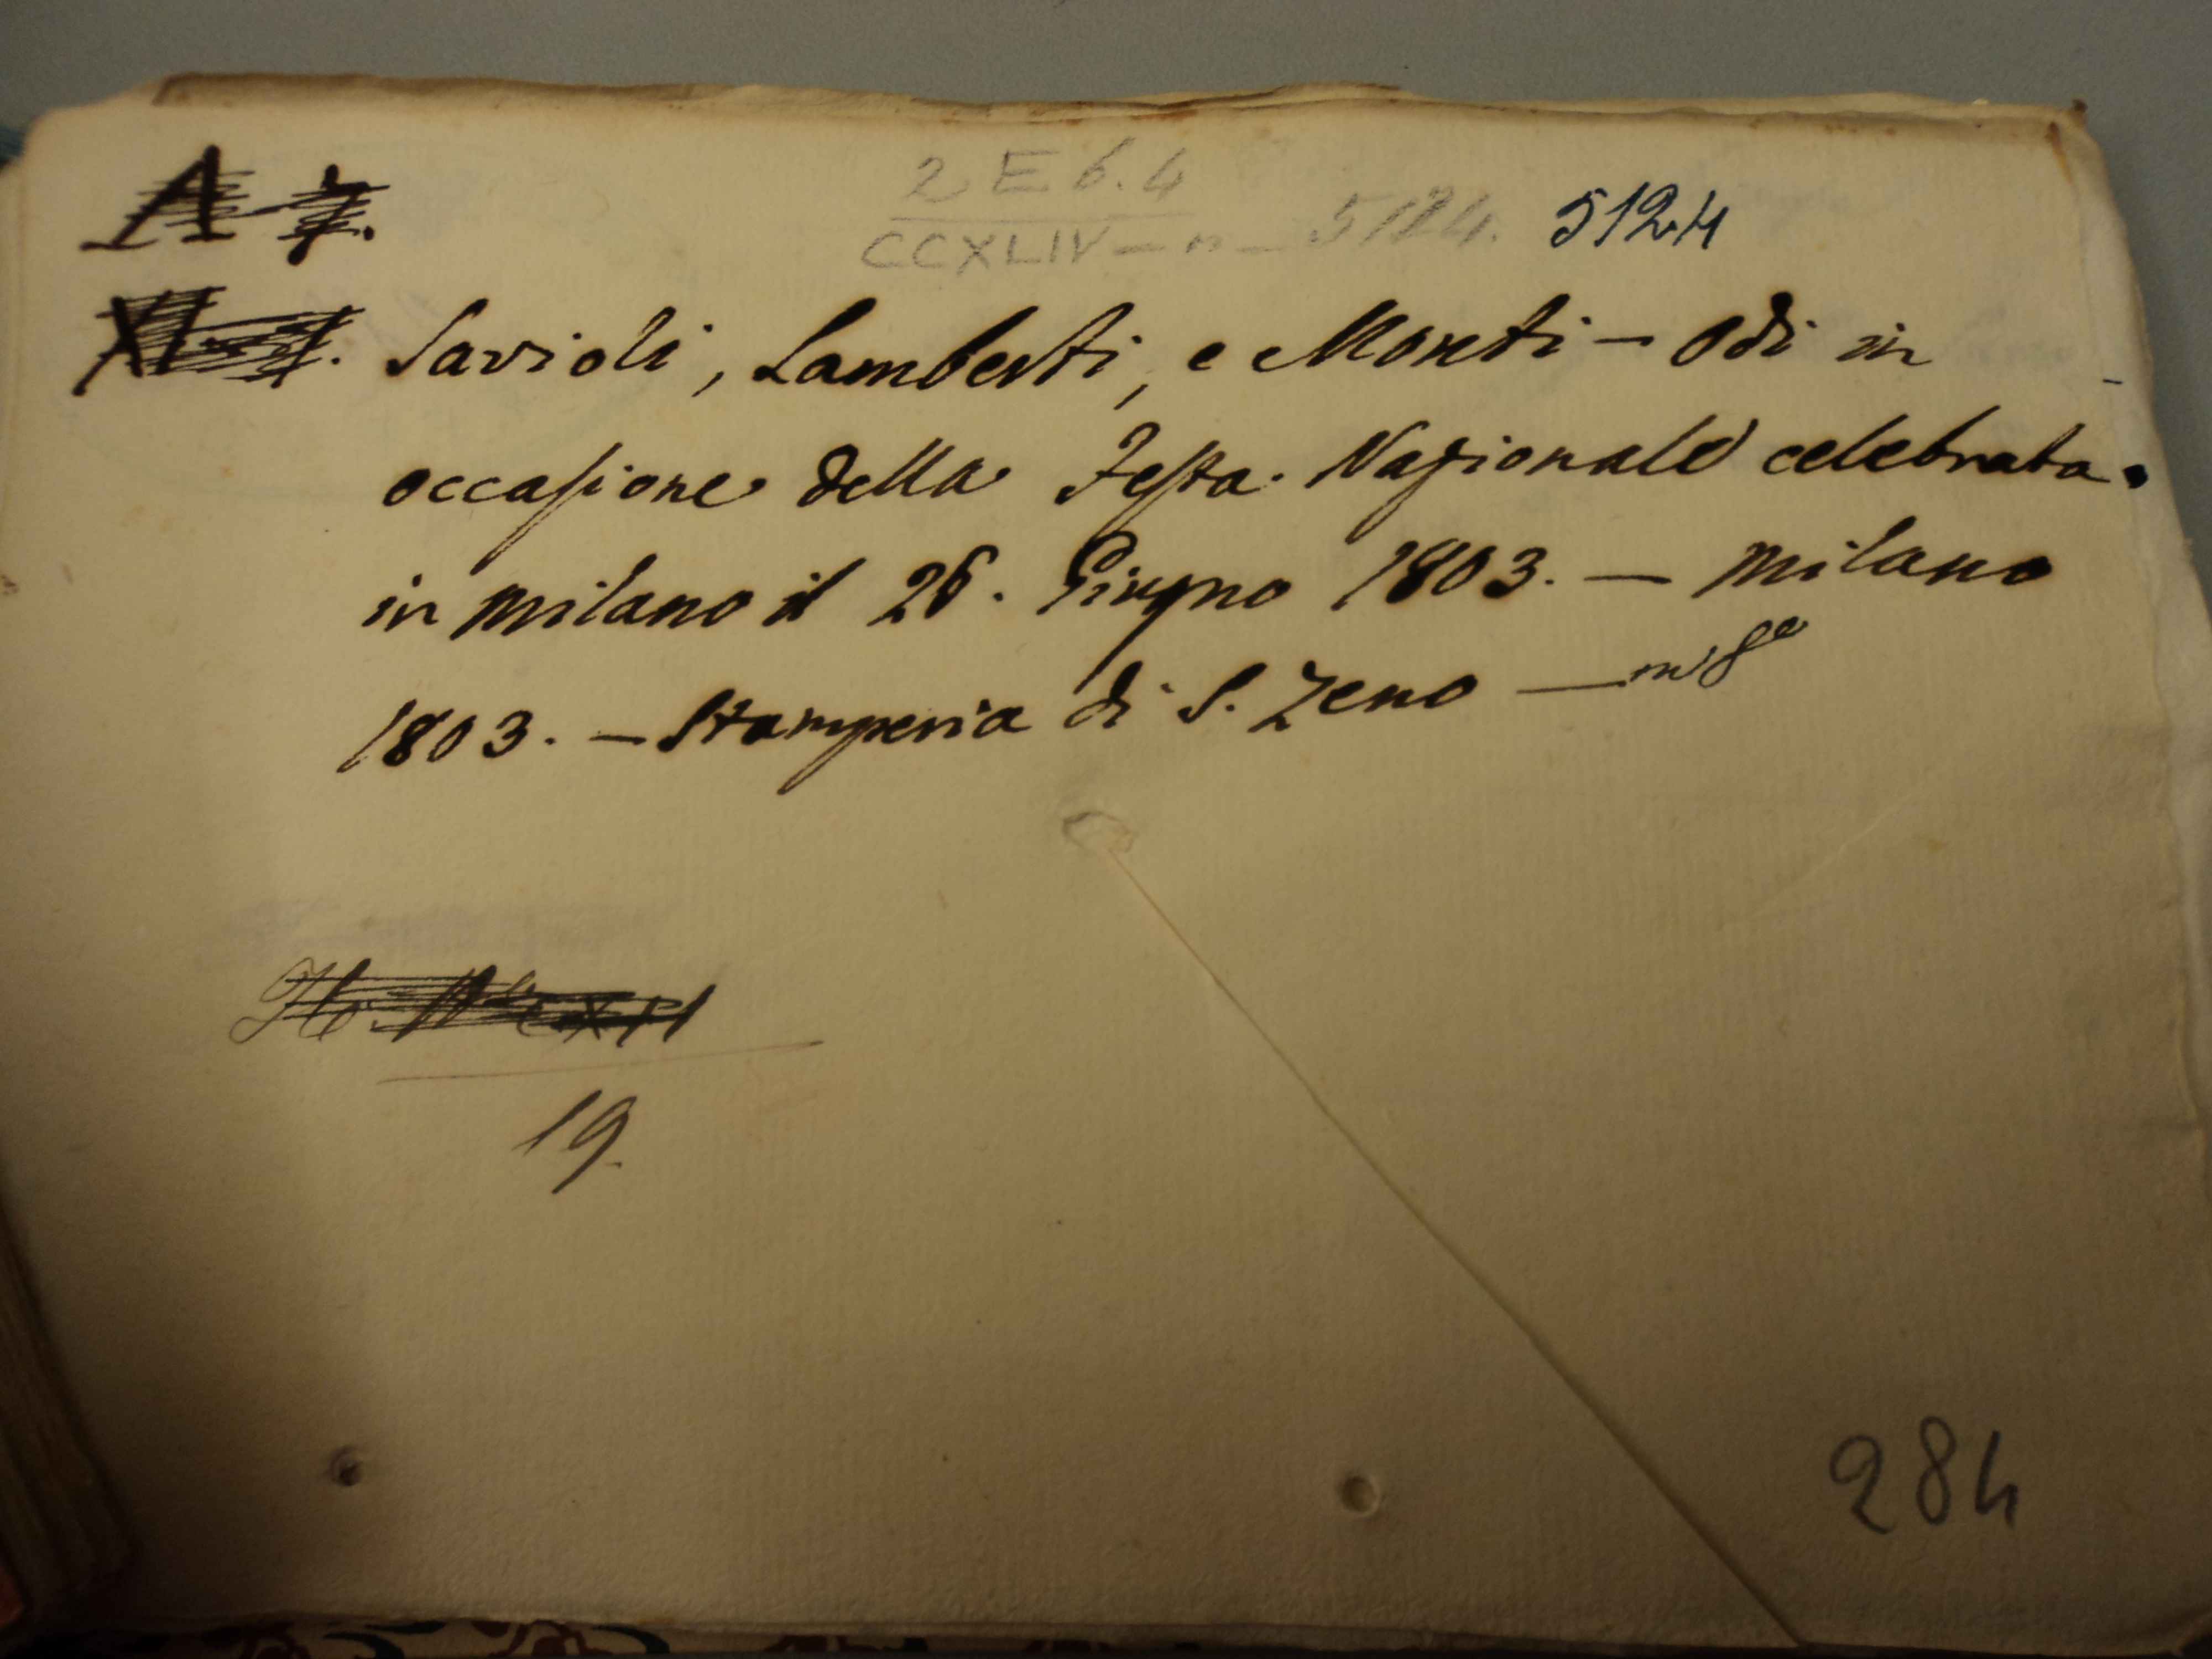 A 7.
2 E 6. 4
CCXLIV — n — 5124. 5124
Savioli, Lamberti, e Monti — Odi in
occasione della Festa Nazionale celebrata
in Milano il 26. Giugno 1803. — Milano
1803. — Stamperia di S. Zeno — in 8º
19.
284